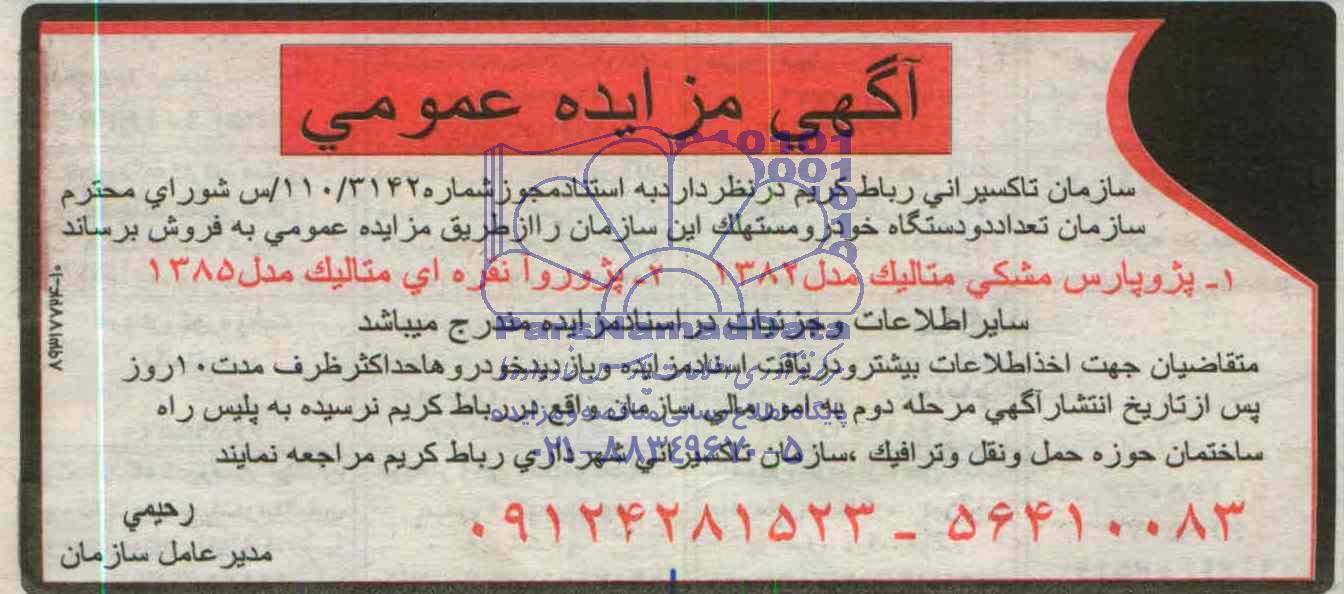 آگهي مزايده عمومي
سازمان تاكسيراني رباط كريم در نظر دارد به استنادمجوز شماره ۱۱۰/۳۱۴۲/س شوراي محترم
سازمان تعداددودستگاه خودرومستهلك اين سازمان راازطريق مزايده عمومي به فروش برساند
۱ـ پژوپارس مشكي متاليك مدل ۱۳۸۲ ۲ـ پژوروآ نقره اي متاليك مدل۱۳۸۵
ساير اطلاعات وجزئيات در اسنادمزايده مندرج ميباشد
متقاضيان جهت اخذاطلاعات بيشترودريافت اسنادمزايده وبازديدخودروهاحداكثرظرف مدت۱۰روز
پس ازتاريخ انتشارآگهي مرحله دوم به امور مالي سازمان واقع دررباط كريم نرسيده به پليس راه
ساختمان حوزه حمل ونقل وترافيك ،سازمان تاكسيراني شهرداري رباط كريم مراجعه نمايند
۵۶۴۱۰۰۸۳ ـ ۰۹۱۲۴۲۸۱۵۲۳
رحيمي
مدير عامل سازمان
ParsNamadData
پایگاه اطلاع رسانی مناقصه و مزایده
۰۲۱-۸۸۳۴۹۶۷۰-۵